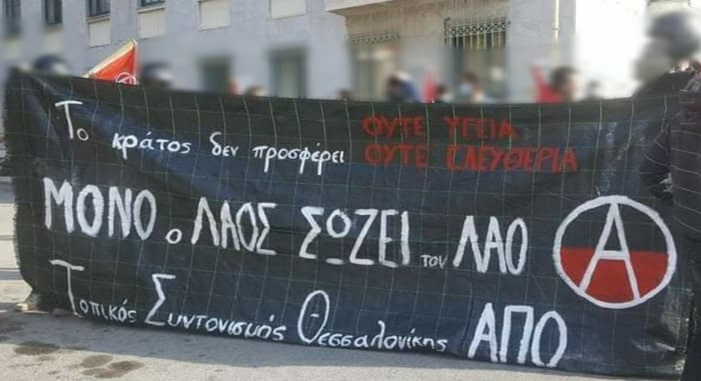 Το κράτος δεν προσφέρει ΟΥΤΕ ΥΓΕΙΑ
ΟΥΤΕ ΕΛΕΥΘΕΡΙΑ
ΜΟΝΟ ο ΛΑΟΣ ΣΩΖΕΙ τον ΛΑΟ
Τοπικός Συντονισμός Θεσσαλονίκης ΑΠΟ
Α